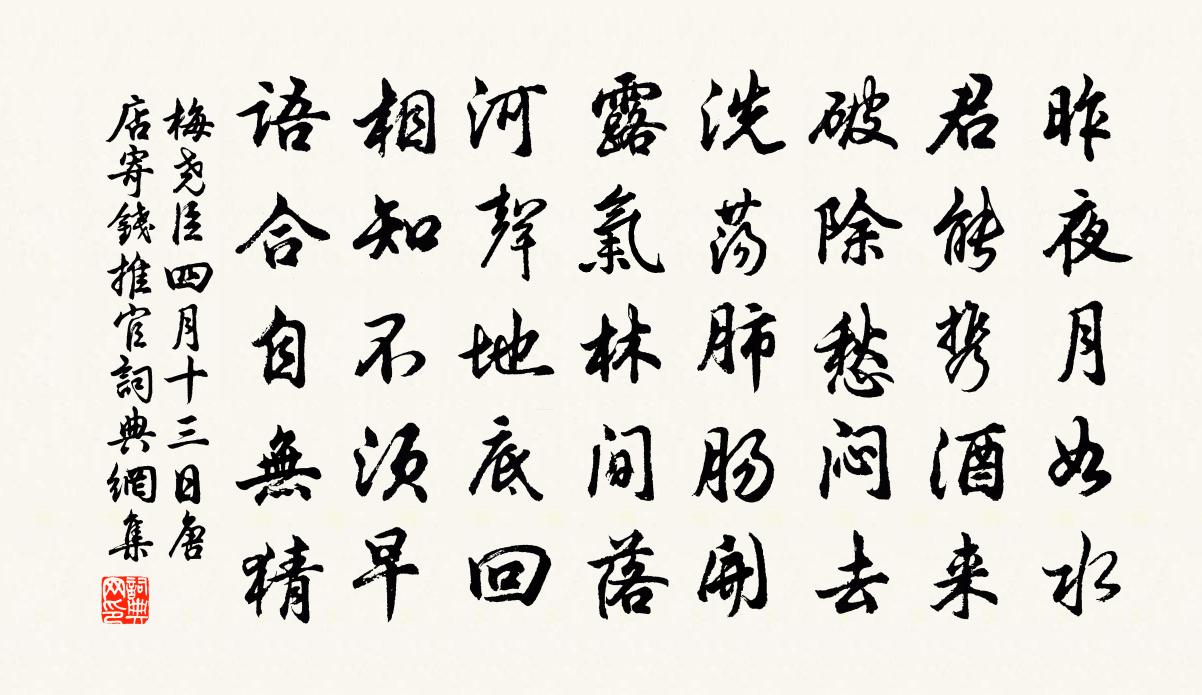 昨夜月如水
君能携酒来
破除愁闷去
洗荡肺肠開
露氣林间落
河聲地底回
相知不須早
語合自無猜
梅尧臣四月十三日唐
店寄錢推官詞典網集
詞典網印